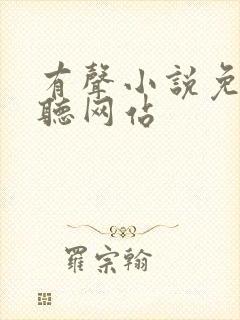 有聲小說免
聽网佔
羅宗翰